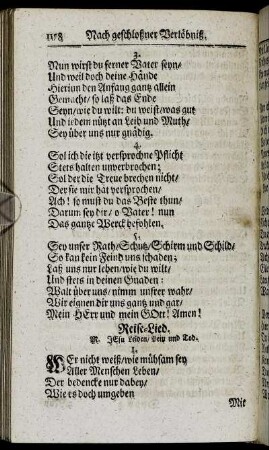 1178 Nach geschloßner Verlöbniß.
3.
Nun wirst du ferner Vater seyn/
Und weil doch deine Hände
Hierinn den Anfang gantz allein
Gemacht/ so laß das Ende
Seyn/ wie du wilt: du weist/ was gut
Und jedem nützt an Leib und Muth/
Sey über uns nur gnädig.
4.
Sol ich die itzt versprochne Pflicht
Stets halten unverbrochen;
Sol der die Treue brechen nicht/
Der sie mir hat versprochen/
Ach! so must du das Beste thun/
Darum sey dir/ o Vater! nun
Das gantze Werck befohlen.
5.
Sey unser Rath/ Schutz/ Schirm und Schild/
So kan kein Feind uns schaden;
Laß uns nur leben/ wie du wilt/
Und stets in deinen Gnaden:
Walt über uns/ nimm unsrer wahr/
Wir eignen dir uns gantz und gar/
Mein HErr und mein GOtt! Amen!
Reise-Lied.
M. JEsu Leiden/ Pein und Tod.
1.
WEr nicht weiß/ wie mühsam sey
Aller Menschen Leben/
Der bedencke nur dabey/
Wie es doch umgeben
Mit